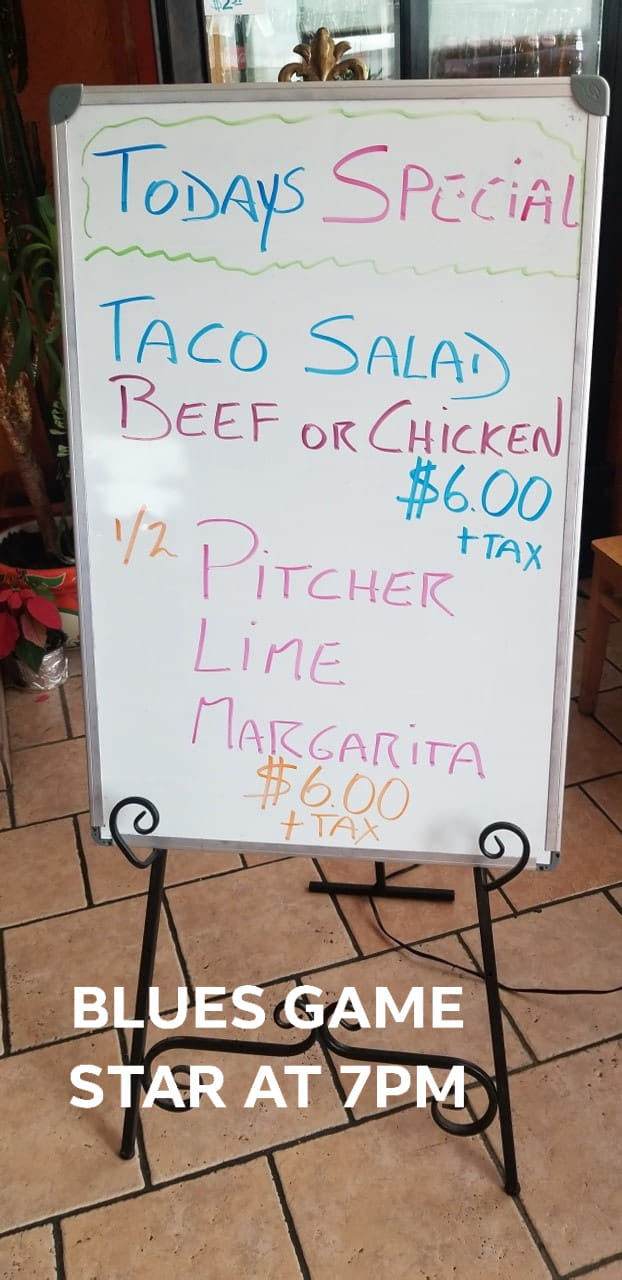 $2
TODAYS SPECiAL
TACO SALAD
BEEF OR CHiCKEN
$6.00
+ TAX
1/2 PiTCHER
LiME
MARGARiTA
$6.00
+ TAX
BLUES GAME
STAR AT 7PM